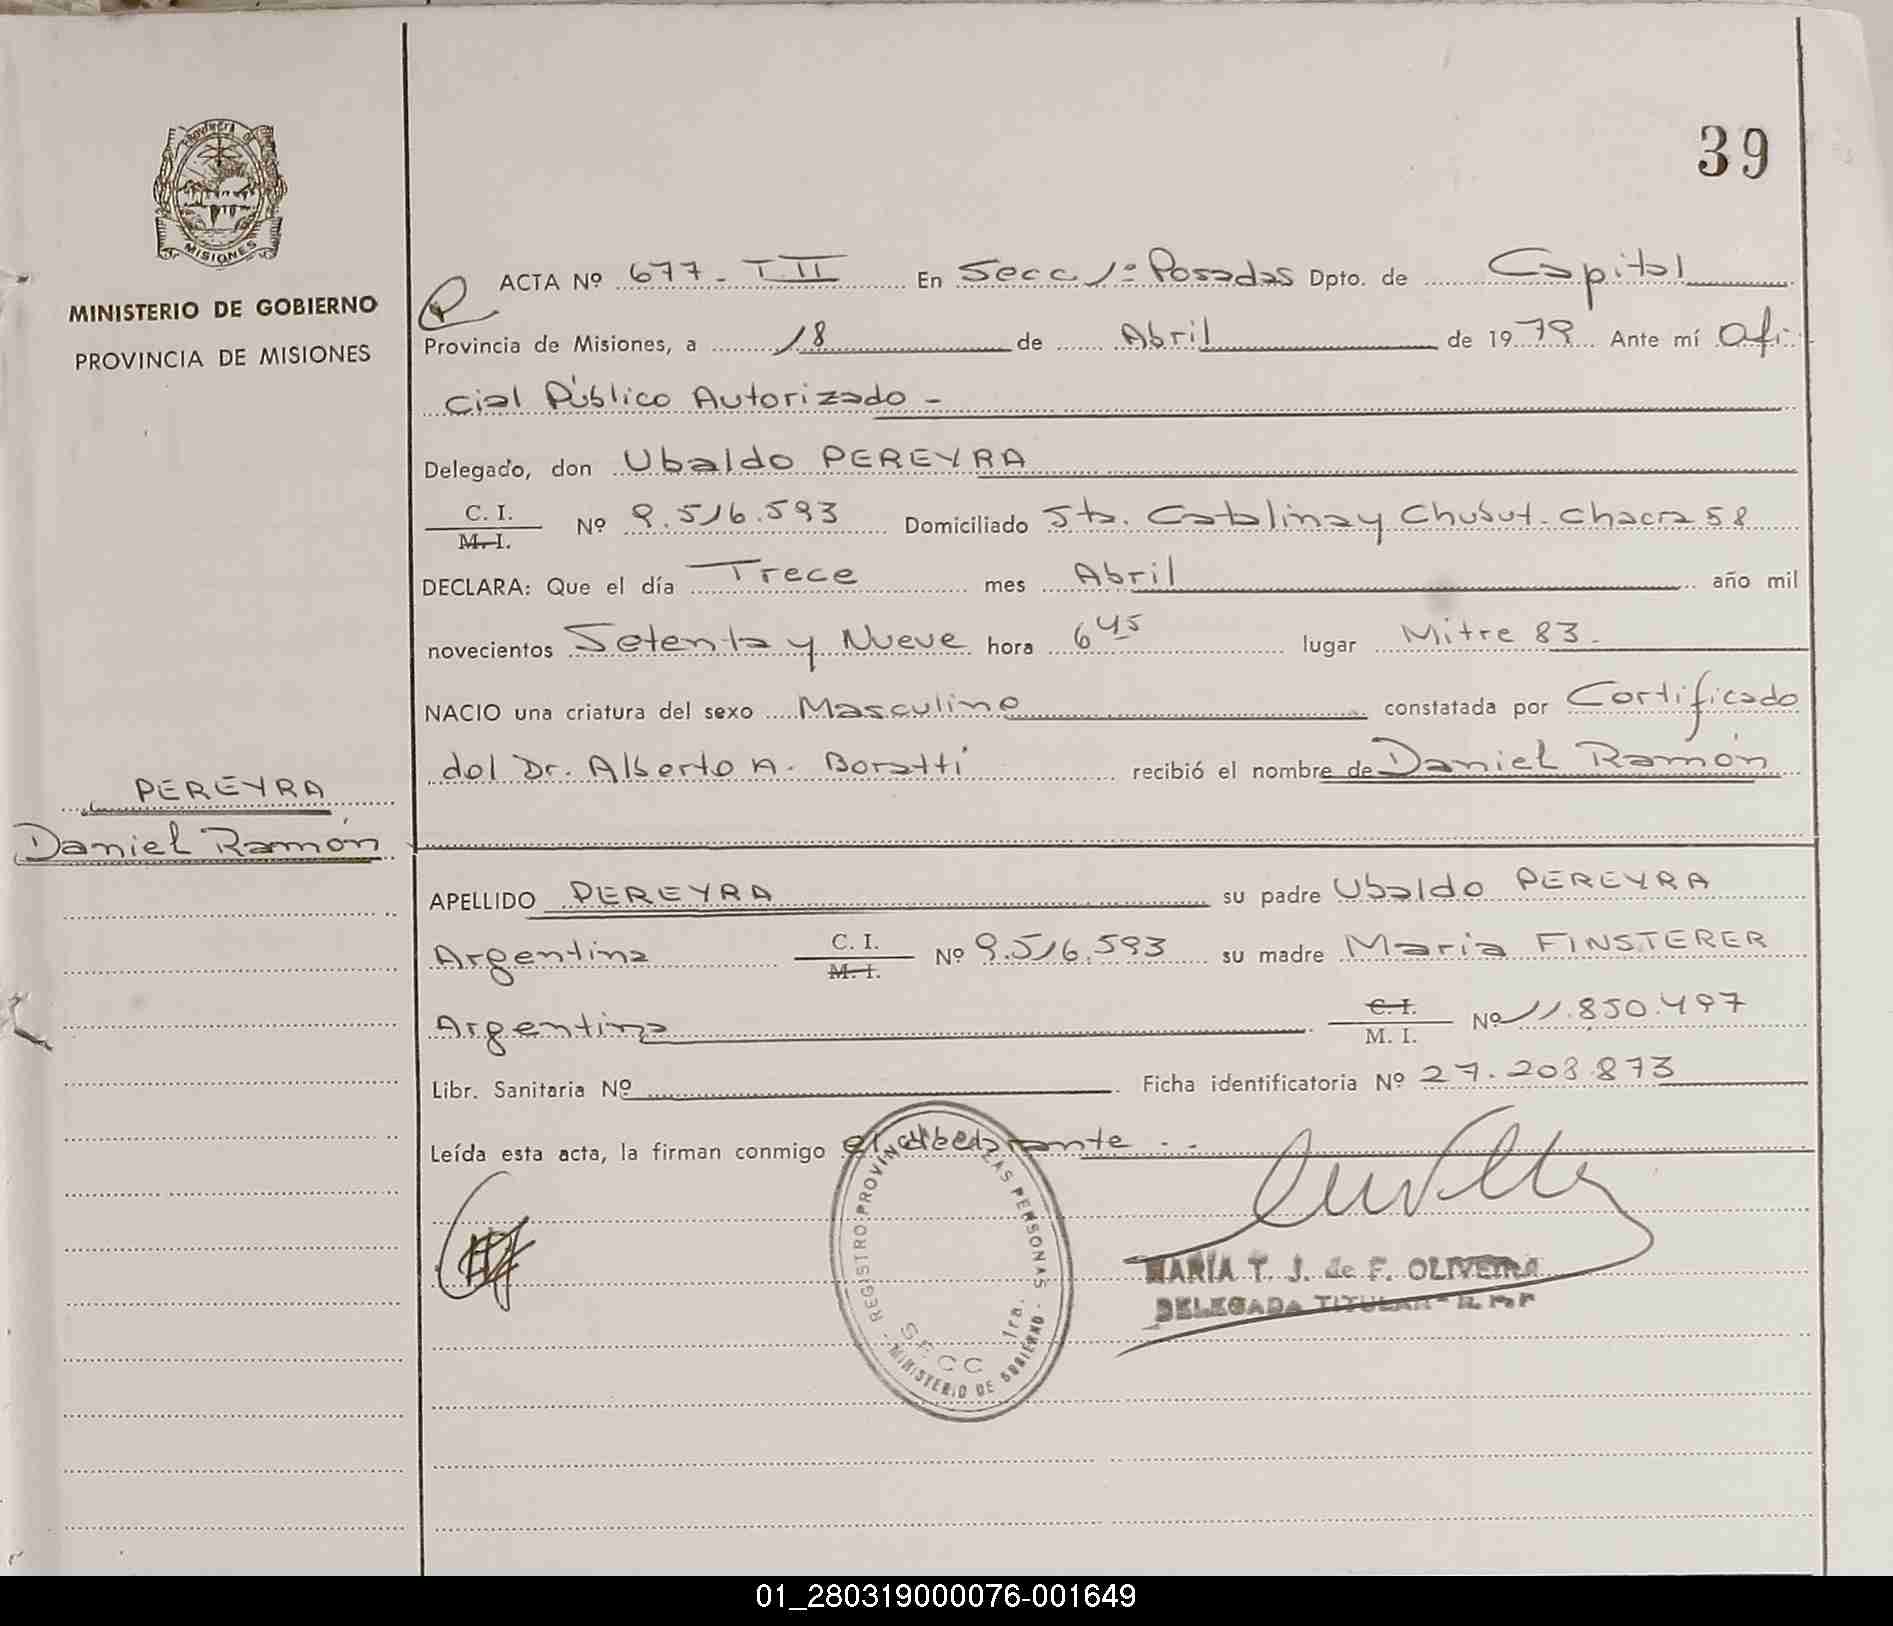 39
PROVINCIA DE
MISIONES
MINISTERIO DE GOBIERNO
PROVINCIA DE MISIONES
ACTA Nº 677 - T II En Secc. 1º Posadas Dpto. de Capital
Provincia de Misiones, a 18 de Abril de 1979 Ante mí Ofi-
cial Público Autorizado -
Delegado, don Ubaldo PEREYRA
C. I.
M. I. Nº 9.516.593 Domiciliado Sta. Catalina y Chubut - Chacra 58
DECLARA: Que el día Trece mes Abril año mil
novecientos Setenta y Nueve hora 6 45 lugar Mitre 83.
NACIO una criatura del sexo Masculino constatada por Certificado
del Dr. Alberto A. Boratti recibió el nombre de Daniel Ramón
PEREYRA
Daniel Ramón
APELLIDO PEREYRA su padre Ubaldo PEREYRA
Argentina C. I. Nº 9.516.593 su madre Maria FINSTERER
M. I.
Argentina C. I. Nº 11.850.497
M. I.
Libr. Sanitaria Nº Ficha identificatoria Nº 27.203.873
Leída esta acta, la firman conmigo el declarante . .
REGISTRO PROVINCIAL DE LAS PERSONAS
SECC 1ra.
MINISTERIO DE GOBIERNO
MARÍA T. J. de F. OLIVEIRA
DELEGADA TITULAR - R. P. P
01_280319000076-001649